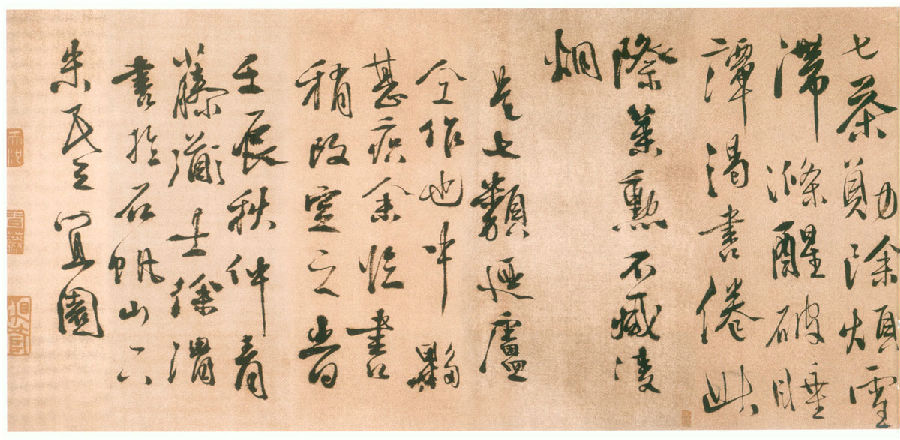 七茶勛除煩雪
滯滌醒破睡
譚渴書倦此
際策勳不減凌
烟
是七類迺盧
仝作也中夥
甚疾余臨書
稍改定之時
壬辰秋仲青
藤道士徐渭
書於石帆山下
朱氏三宜園